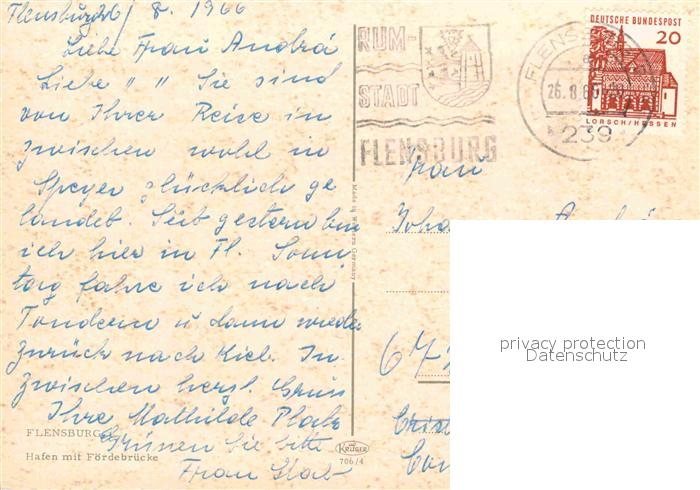 Flensburg 26/8. 1966
Liebe Frau Andrá
Liebe " " Sie sind
von Ihrer Reise in
zwischen wohl in
Speyer glücklich ge
landet. Seit gestern bin
ich hier in Fl. Sonn
tag fahre ich nach
Tondern u dann wieder
zurück nach Kiel. In
zwischen herzl. Grüss
Ihre Mathilde
Grüssen Sie bitte
Frau
FLENSBURG
Hafen mit Fördebrücke
Made in Western Germany
KRÜGER
706/4
RUM-
STADT
FLENSBURG
FLENSB
26.8.66
239
DEUTSCHE BUNDESPOST
20
LORSCH/HESSEN
Frau
Joha André
67
privacy protection
Datenschutz